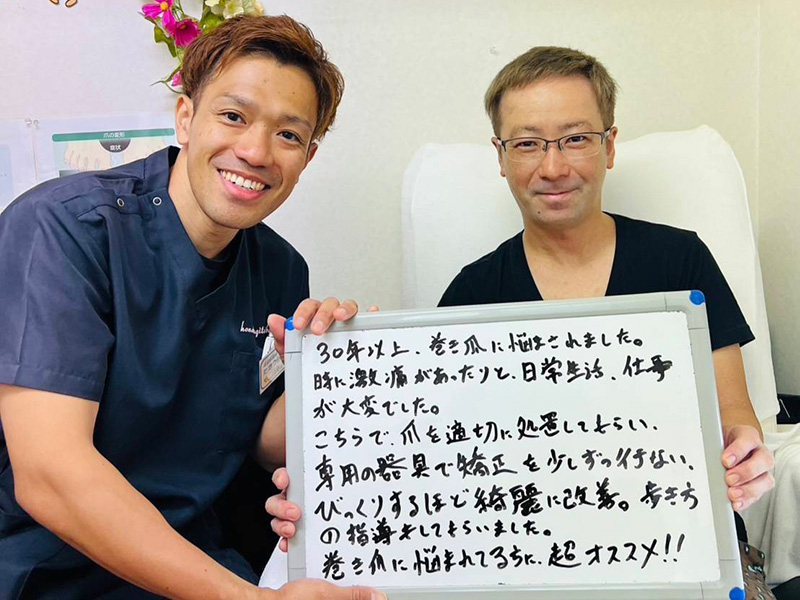 爪の変形
症状
30年以上、巻き爪に悩まされました。
時に激痛があったりと、日常生活、仕事
が大変でした。
こちらで、爪を適切に処置してもらい、
専用の器具で矯正を少しずつ行ない、
びっくりするほど綺麗に改善。歩き方
の指導もしてもらいました。
巻き爪に悩まれてる方に、超オススメ!!